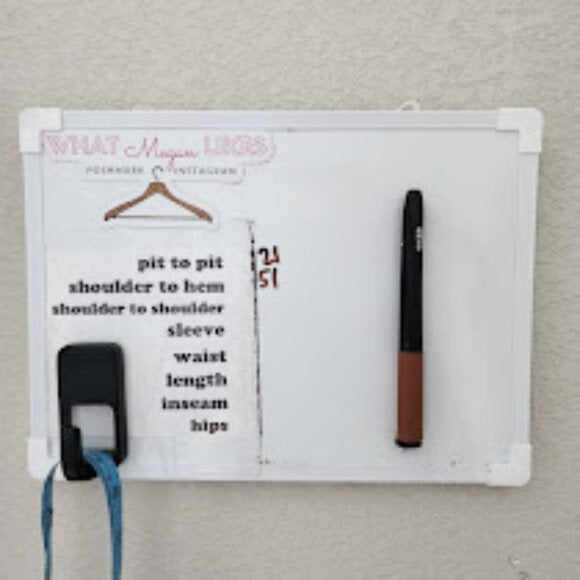 WHAT Megan LIKES
POSHMARK INSTAGRAM
pit to pit 21
shoulder to hem 51
shoulder to shoulder
sleeve
waist
length
inseam
hips